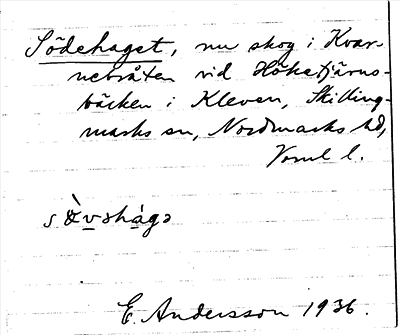 Södehaget, nu skog i Kvar-
nebråten vid Höketjärns-
bäcken i Kleven, Skilling-
marks sn, Nordmarks hd,
Vrml l.
E. Andersson 1936.